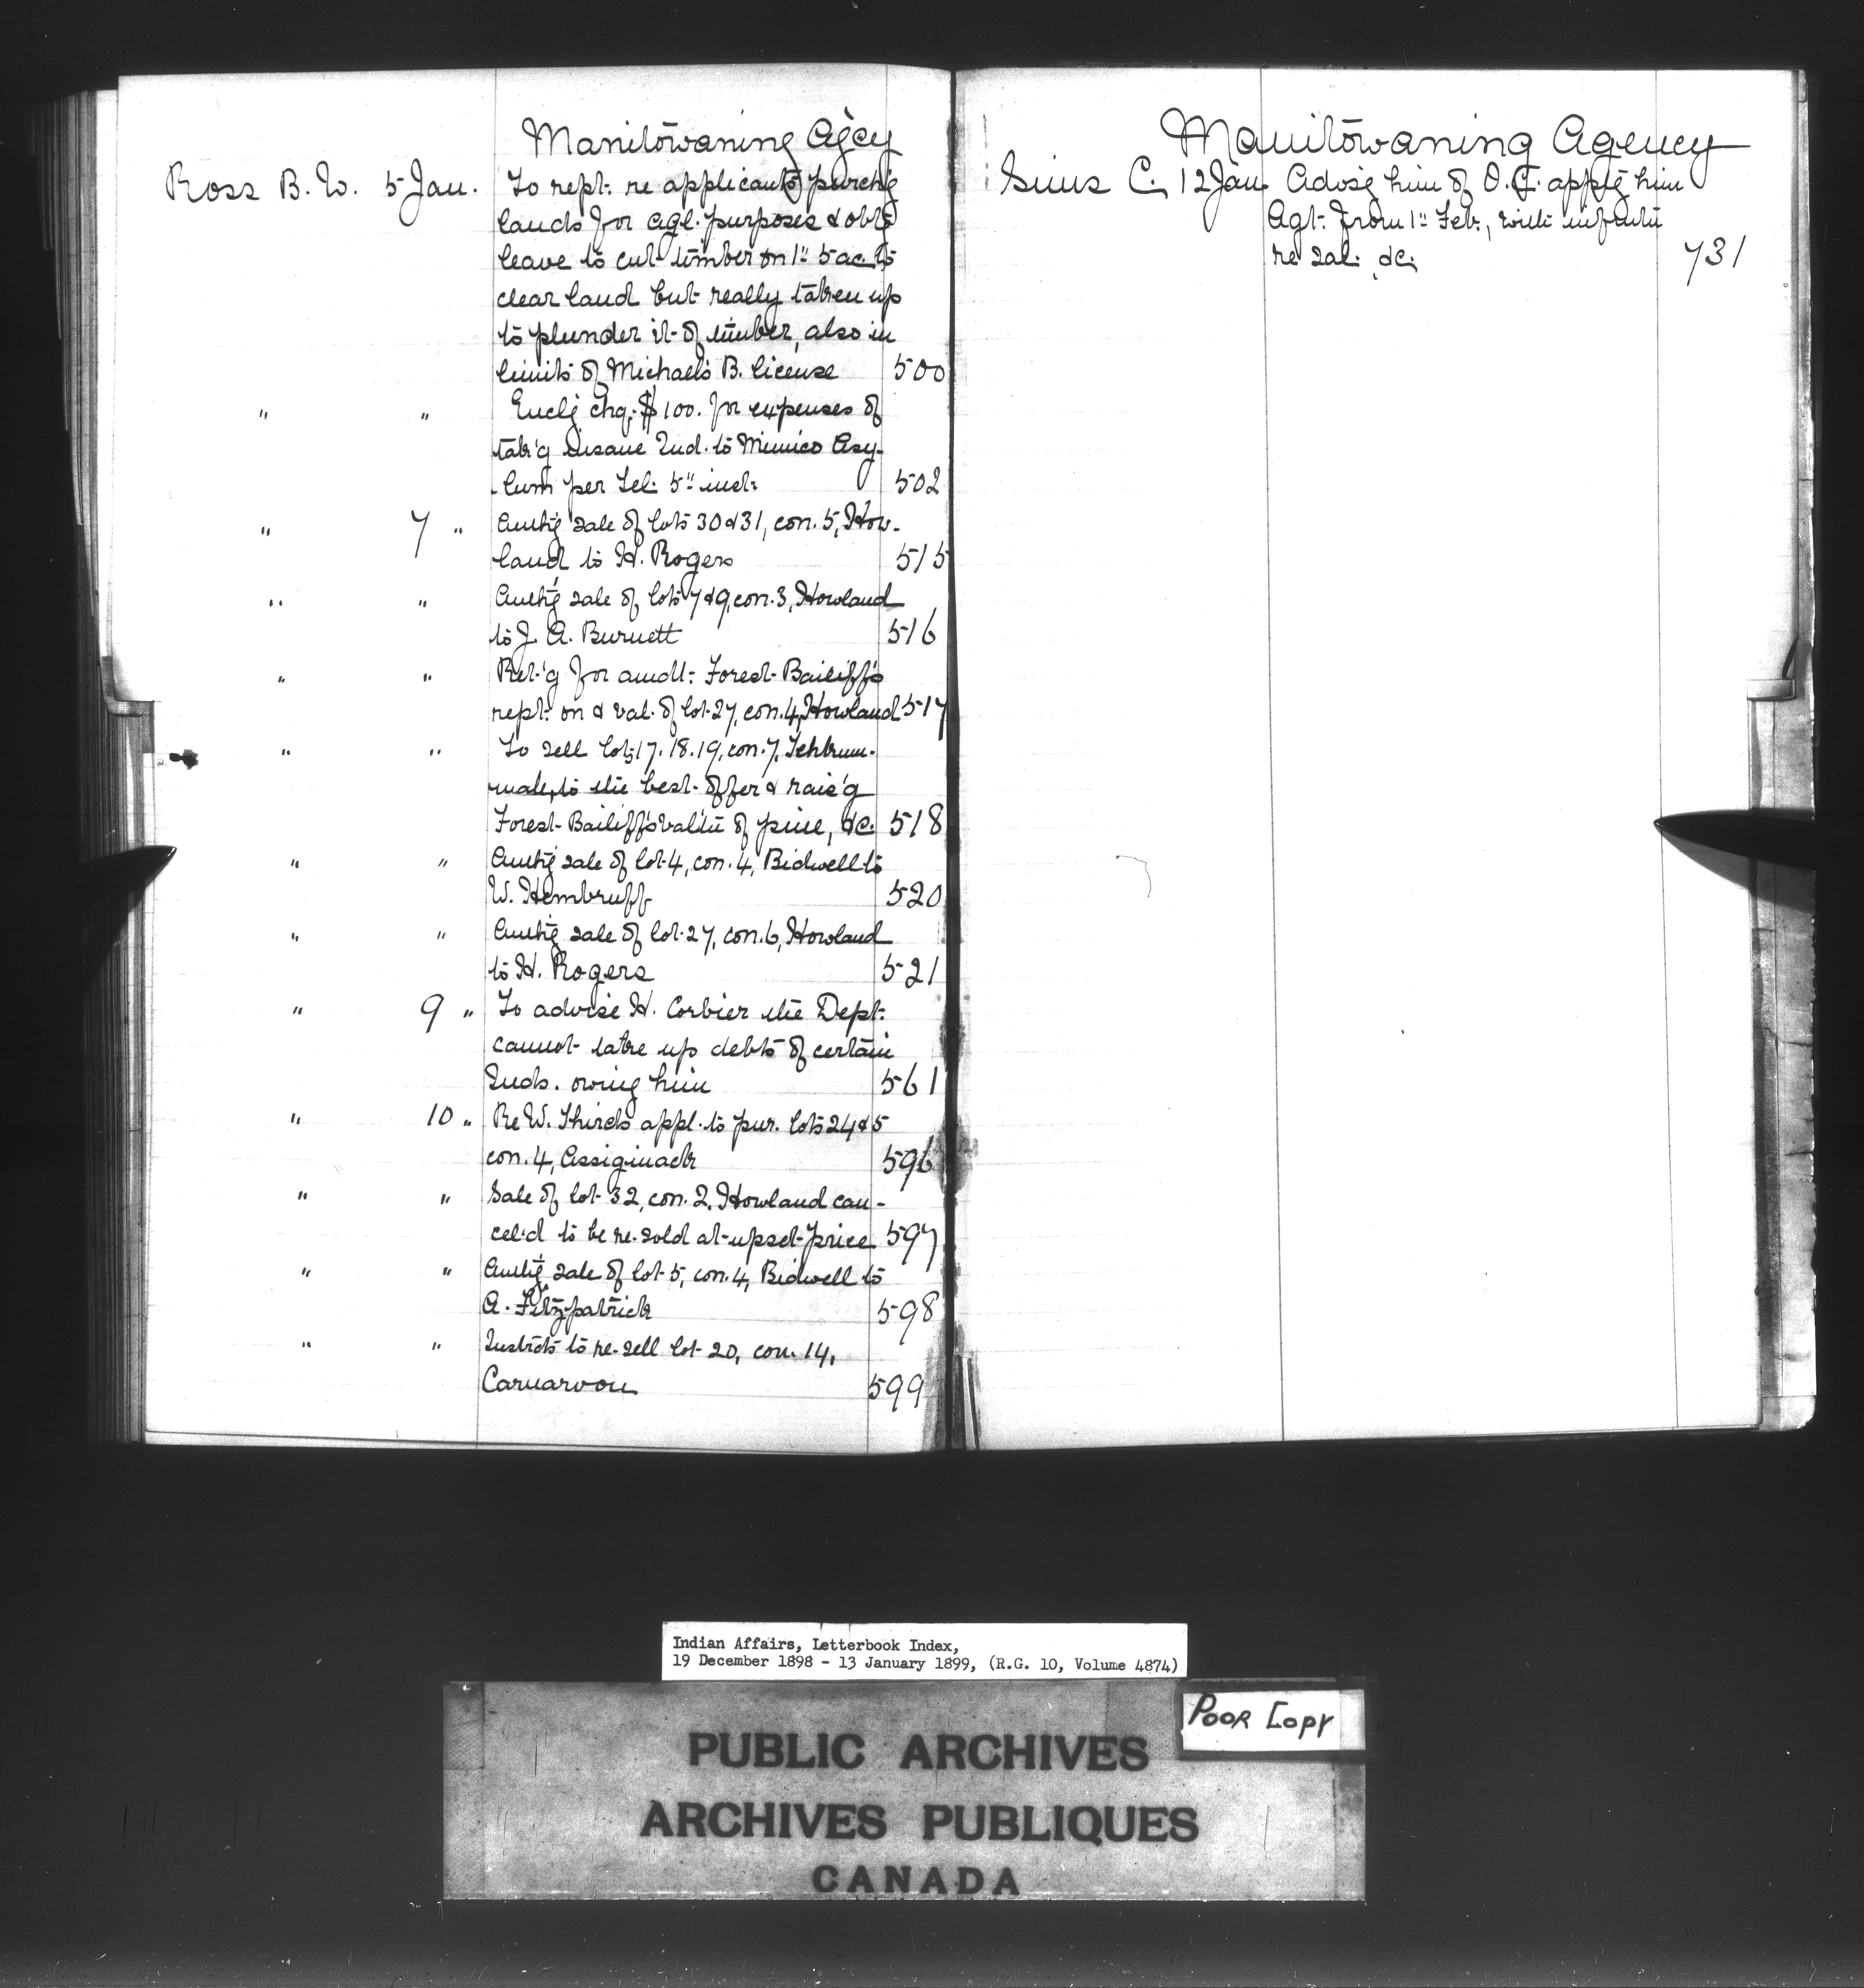 Manitowaning Agcy
Ross B. W. 5 Jan. To rept: re applicants purch'g
lands for agl. purposes & obt'g
leave to cut timber on 1" 5 ac. to
clear land but really taken up
to plunder it of timber, also in
limits of Michael's B. license 500
" " Encl'g chq: $100. for expenses of
tak'g Insane Ind. to Mimico Asy-
-lum per Tel: 5" inst: 502
" 7 " Auth'g sale of lots 30 & 31, con. 5, How-
land to H. Rogers 515
" " Auth'g sale of lots 7 & 9, con. 3, Howland
to J. A. Burnett 516
" " Ret'g for amdt: Forest Bailiff's
rept: on & val. of lot 27, con. 4, Howland 517
" " To sell lots 17. 18. 19, con. 7, Tehkum-
mah, to the best offer & rais'g
Forest Bailiff's val'tn of pine, &c. 518
" " Auth'g sale of lot 4, con. 4, Bidwell to
W. Hembruff 520
" " Auth'g sale of lot 27, con. 6, Howland
to H. Rogers 521
" 9 " To advise H. Corbier the Dept:
cannot take up debts of certain
Inds. owing him 561
" 10 " Re W. Thirds appl. to pur. lots 24 & 5
con. 4, Assiginack 596
" " Sale of lot 32, con. 2, Howland can-
cel'd to be re-sold at upset price 597
" " Auth'g sale of lot 5, con. 4, Bidwell to
A. Fitzpatrick 598
" " Instrcts to re-sell lot 20, con. 14,
Carnarvon 599
Manitowaning Agency
Sims C. 12 Jan. Advis'g him of O. C. appt'g him
Agt: from 1" Feb., with
re sal: &c. 731
Indian Affairs, Letterbook Index,
19 December 1898 - 13 January 1899, (R.G. 10, Volume 4874)
Poor Copy
PUBLIC ARCHIVES
ARCHIVES PUBLIQUES
CANADA